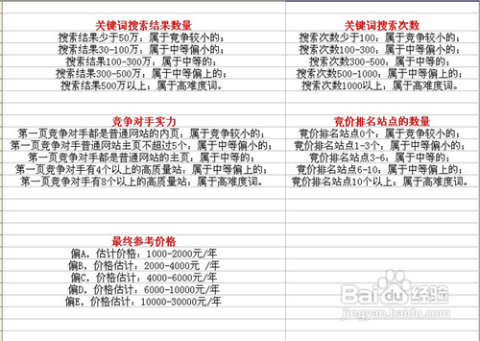 关键词搜索结果数量
搜索结果少于50万：属于竞争较小的；
搜索结果30-100万：属于中等偏小的；
搜索结果100-300万：属于中等的；
搜索结果300-500万：属于中等偏上的；
搜索结果500万以上：属于高难度词。
关键词搜索次数
搜索次数少于100：属于竞争较小的；
搜索次数100-300：属于中等偏小的；
搜索次数300-500：属于中等的；
搜索次数500-1000：属于中等偏上的；
搜索次数1000以上：属于高难度词。
竞争对手实力
第一页竞争对手都是普通网站的内页：属于竞争较小的；
第一页竞争对手普通网站主页不超过5个：属于中等偏小的；
第一页竞争对手都是普通网站的主页：属于中等的；
第一页竞争对手有4个以上的高质量站：属于中等偏上的；
第一页竞争对手有8个以上的高质量站：属于高难度词。
竞价排名站点的数量
竞价排名站点0个：属于竞争较小的；
竞价排名站点1-3个：属于中等偏小的；
竞价排名站点3-6：属于中等的；
竞价排名站点6-10：属于中等偏上的；
竞价排名站点10个以上：属于高难度词。
最终参考价格
偏A，估计价格：1000-2000元/年
偏B，价格估计：2000-4000元 /年
偏C，价格估计：4000-6000元/年
偏D，价格估计：6000-10000元/年
偏E，价格估计：10000-30000元/年
Baidu 经验
jingyan.baidu.com